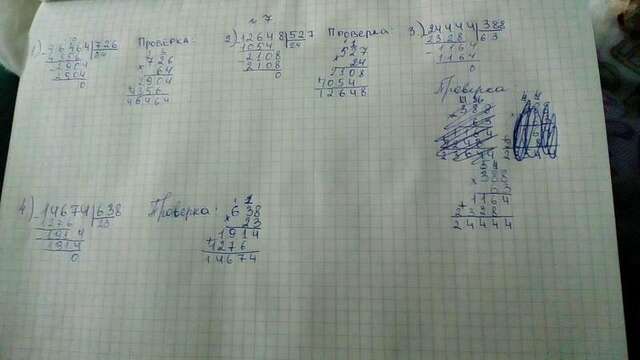 № 7
1) 46464 | 726
4356 64
2904
2904
0
Проверка:
× 726
64
2904
4356
46464
2) 12648 | 527
1054 24
2108
2108
0
Проверка:
× 527
24
2108
1054
12648
3) 24444 | 388
2328 63
- 1164
1164
0
Проверка
× 388
63
+ 1164
2328
24444
4) - 14674 | 638
1276 23
1914
1914
0
Проверка:
× 638
23
+ 1914
1276
14674